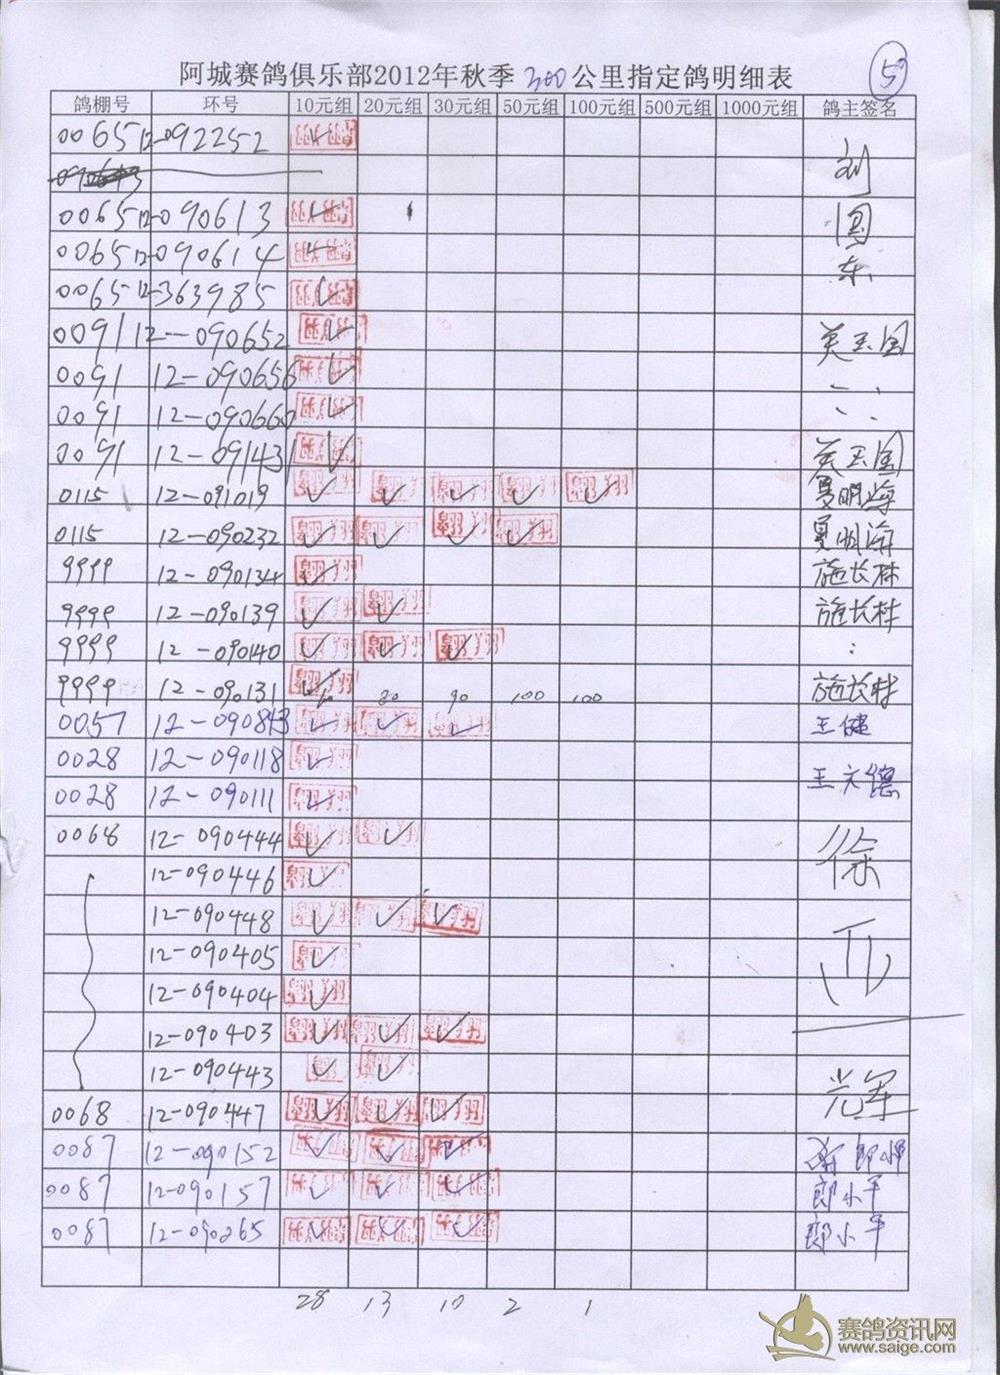 阿城赛鸽俱乐部2012年秋季 300 公里指定鸽明细表 5
鸽棚号 环号 10元组 20元组 30元组 50元组 100元组 500元组 1000元组 鸽主签名
0065 12-092252 刘
0065 12-090613 ✓ 国
0065 12-090614 东
0065 12-363985 ✓
0091 12-090652 ✓ 英玉国
0091 12-090656 ✓
0091 12-090660 ✓
0091 12-091431 ✓ 英玉国
0115 12-091019 ✓ ✓ ✓ ✓ ✓ 夏明海
0115 12-090232 ✓ ✓ ✓ ✓ 夏明海
9999 12-090134 ✓ 施长林
9999 12-090139 ✓ ✓ 施长林
9999 12-090140 ✓ ✓ ✓
9999 12-090131 100 100 施长林
0057 12-090813 ✓ ✓ ✓ 王健
0028 12-090118 ✓ 王文德
0028 12-090111 ✓
0068 12-090444 ✓ ✓ 徐
12-090446 ✓
12-090448 ✓ ✓ ✓
12-090405 ✓
12-090404 ✓
12-090403 ✓ ✓ ✓
12-090443 ✓ ✓ 光军
0068 12-090447 ✓ ✓ ✓
0087 12-090152 ✓ ✓ ✓
0087 12-090157 ✓ ✓ ✓ 郎小平
0087 12-090265 ✓ ✓ ✓ 郎小平
28 13 10 2 1
赛鸽资讯网
www.saige.com